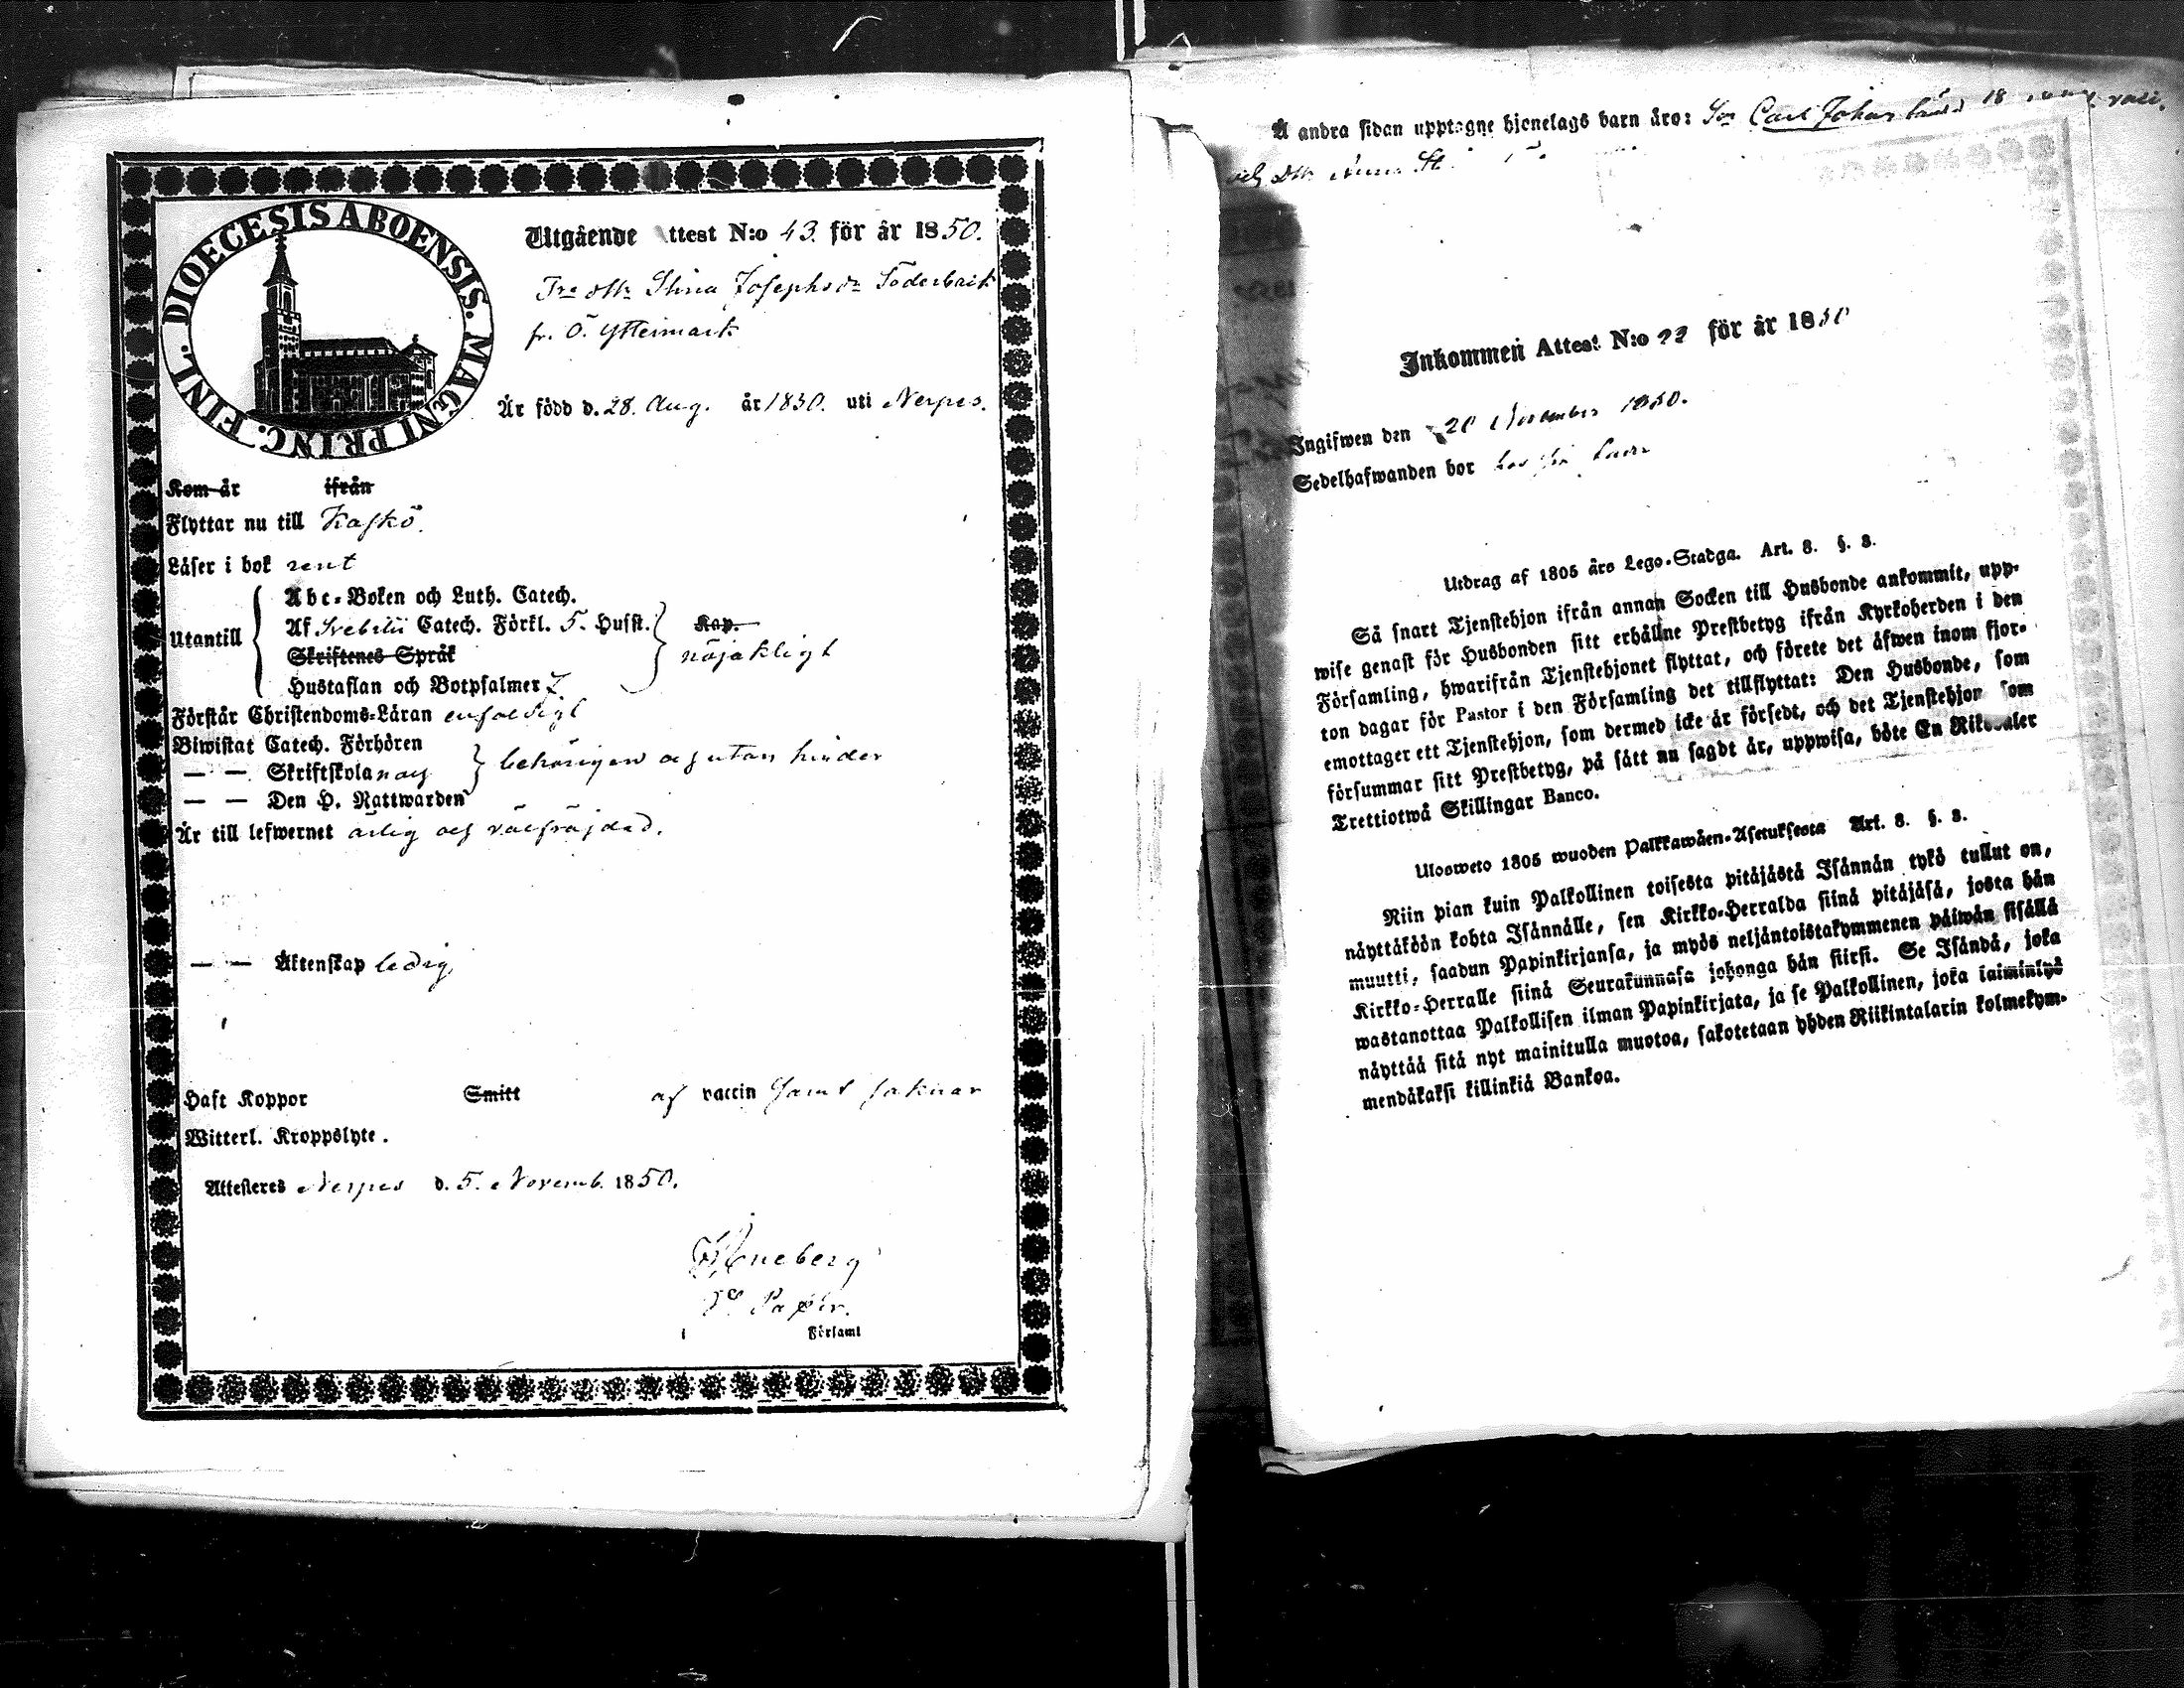 DIOECESIS ABOENSIS. MAGNI PRINC. FINL.
Utgående Attest N:o 43. för år 1850.
Josephsdr Söderback
fr. Ö. Yttermark
Är född d. 28. Aug. år 1830. uti Nerpes.
Kom år ifrån
Flyttar nu till Kaskö.
Läser i bok rent
Utantill
Abc-Boken och Luth. Catech.
Af Svebilii Catech. Förkl. 5. Husst. Kap.
Skriftenes Språk
nöjakligt
Hustaflan och Botpsalmer 7.
Förstår Christendoms-Läran enfaldigt
Biwistat Catech. Förhören
— — Skriftskola och behörigen och utan hinder
— — Den H. Nattwarden
Är till lefwernet ärlig och välfräjdad.
— — Äktenskap ledig
Haft Koppor Smitt af vaccin samt saknar
Witterl. Kroppslyte.
Attesteras Nerpes d. 5. Novemb. 1850.
Församl
Å andra sidan upptagne hjonelags barn äro: Son Carl Johan 18
och Dtr Anna
Inkommen Attest N:o 22 för år 1850
Ingifwen den 20 November 1850.
Sedelhafwanden bor hos
Utdrag af 1805 års Lego-Stadga. Art. 8. §. 3.
Så snart Tjenstehjon ifrån annan Socken till Husbonde ankommit, upp-
wise genast för Husbonden sitt erhållne Prestbetyg ifrån Kyrkoherden i den
Församling, hwarifrån Tjenstehjonet flyttat, och förete det äfwen inom fjor-
ton dagar för Pastor i den Församling det tillflyttat: Den Husbonde, som
emottager ett Tjenstehjon, som dermed icke är försedt, och det Tjenstehjon som
försummar sitt Prestbetyg, på sätt nu sagdt är, uppwisa, böte En Riksdaler
Trettiotwå Skillingar Banco.
Ulosweto 1805 wuoden Palkkawäen-Asetuksesta Art. 8. §. 3.
Niin pian kuin Palkollinen toisesta pitäjästä Isännän tykö tullut on,
näyttäköön kohta Isännälle, sen Kirkko-Herralda siinä pitäjäsä, josta hän
muutti, saadun Papinkirjansa, ja myös neljäntoistakymmenen päiwän sisällä
Kirkko-Herralle siinä Seurakunnasa johonga hän siirsi. Se Isändä, joka
wastanottaa Palkollisen ilman Papinkirjata, ja se Palkollinen, joka laiminlyö
näyttää sitä nyt mainitulla muotoa, sakotetaan yhden Riikintalarin kolmekym-
mendäkaksi killinkiä Bankoa.